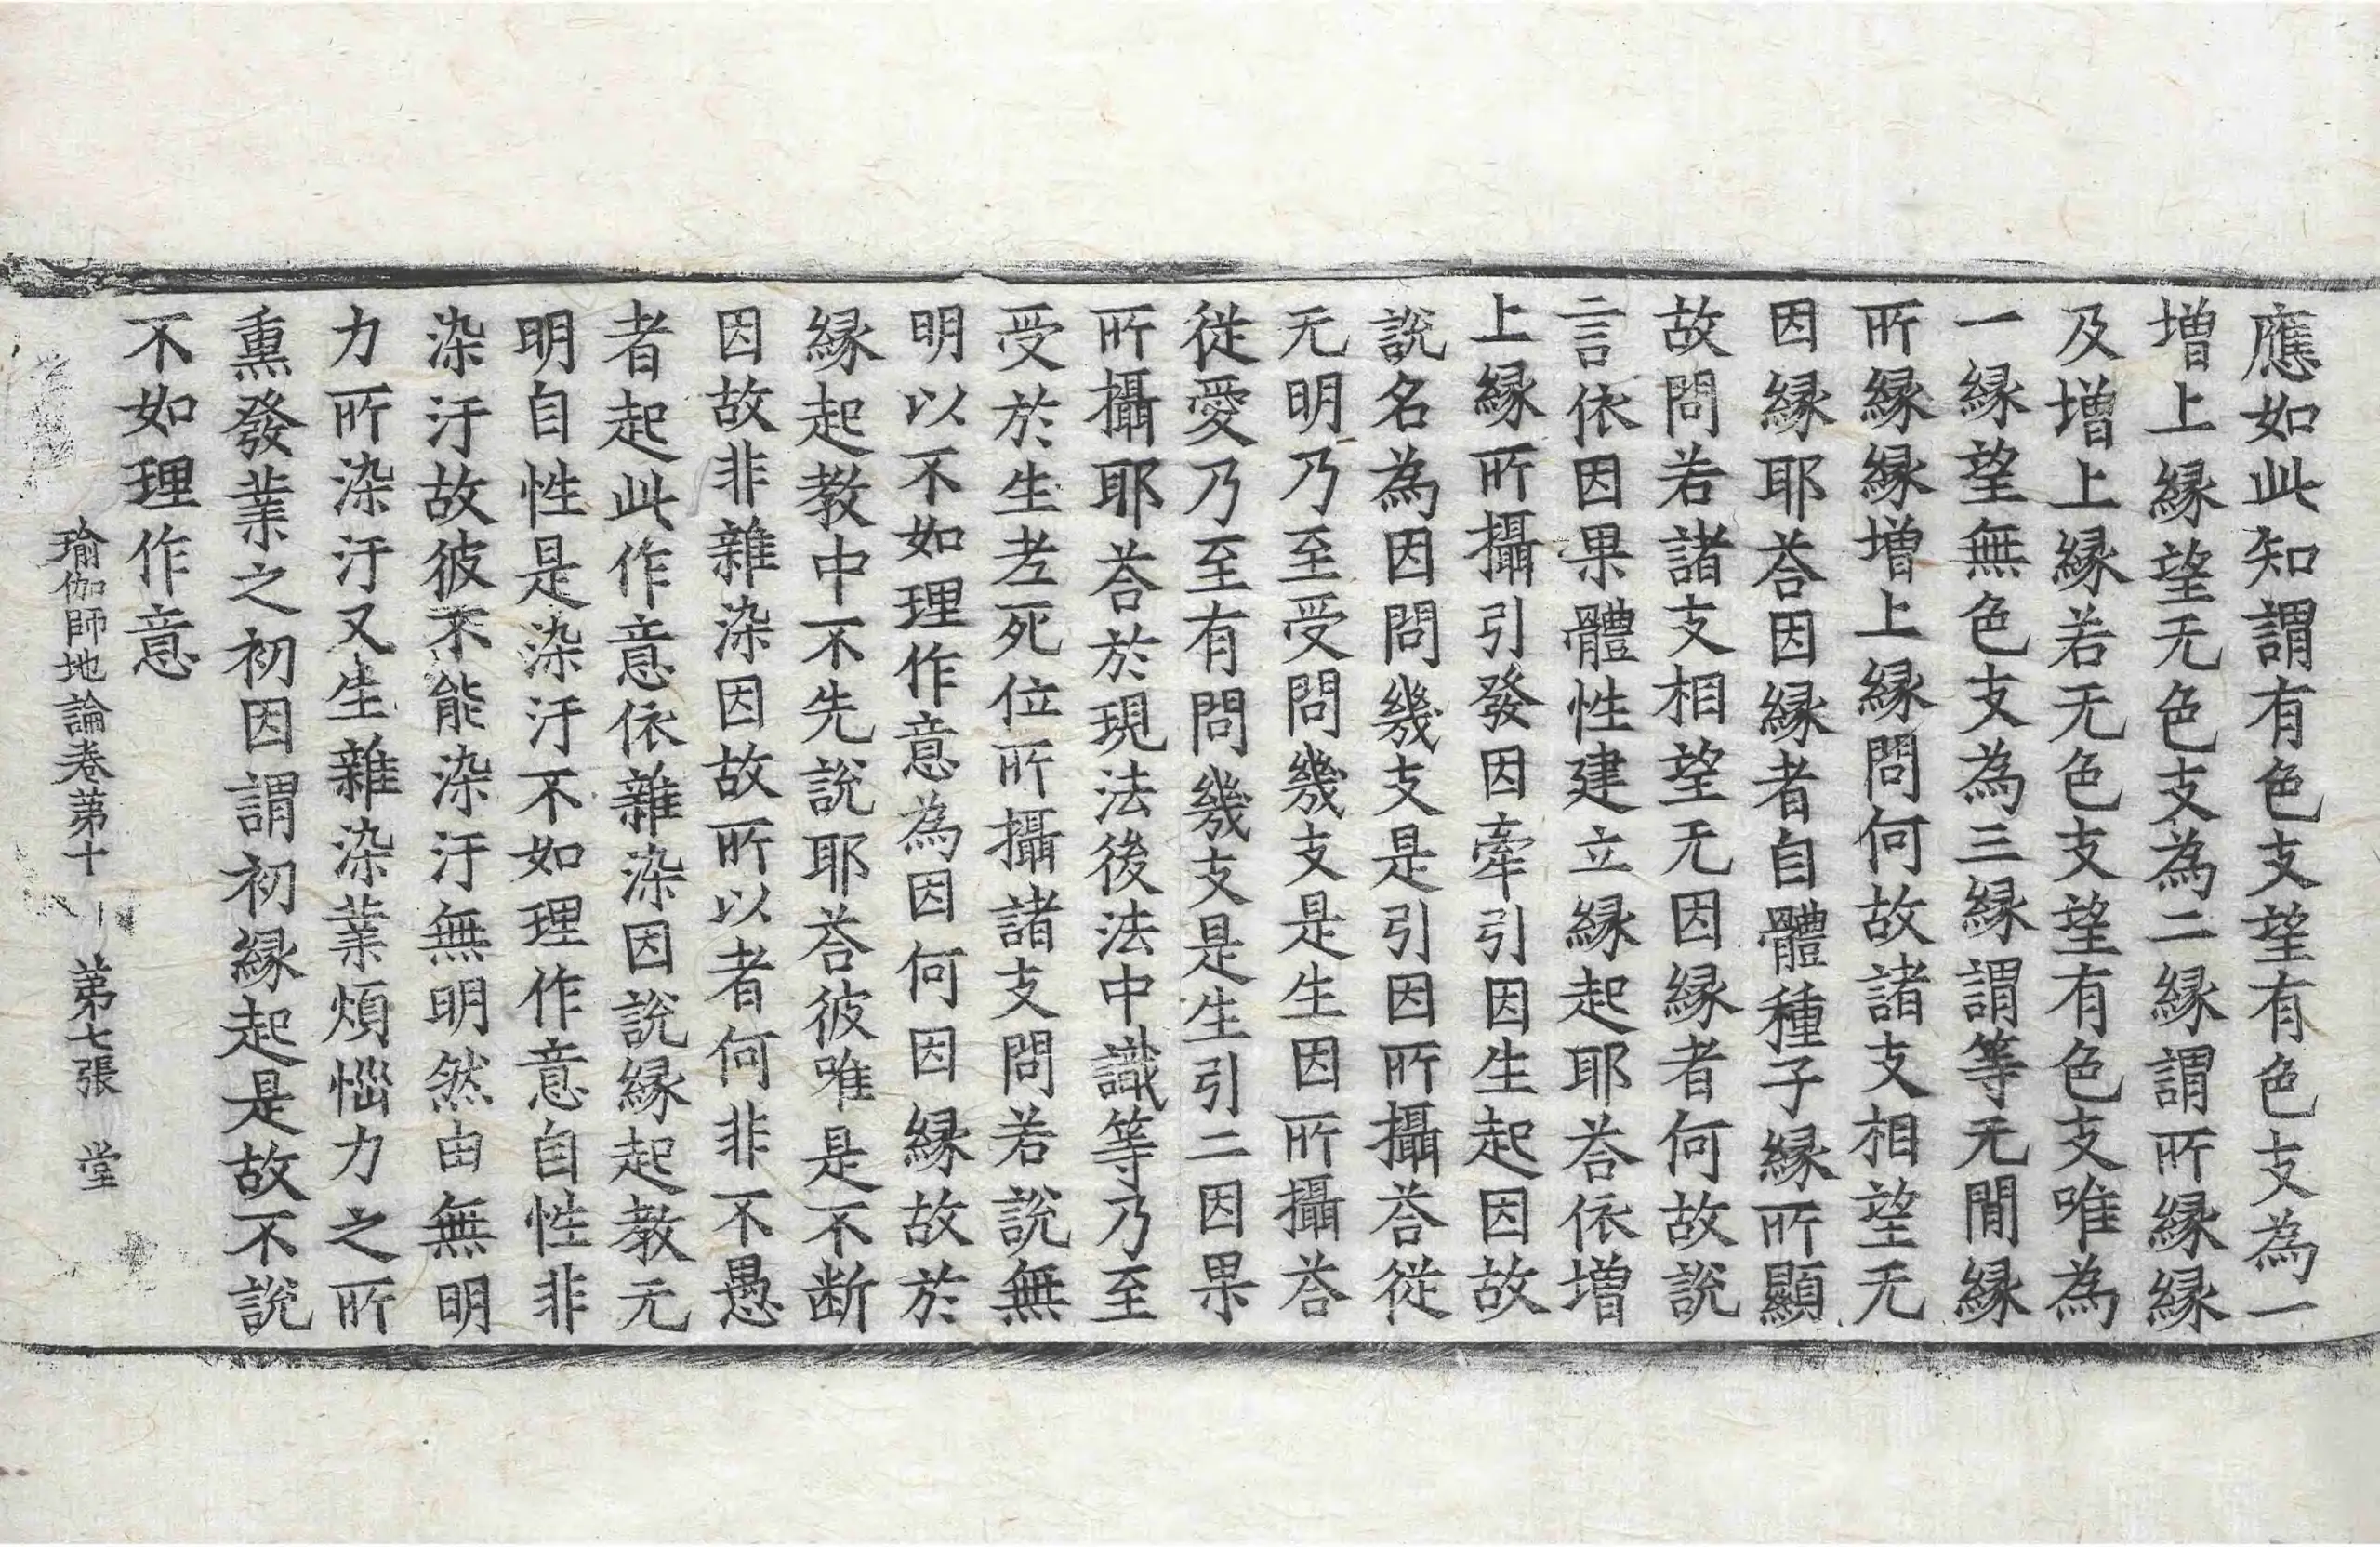 應如此知謂有色支望有色支為一
增上緣望无色支為二緣謂所緣緣
及增上緣若无色支望有色支唯為
一緣望無色支為三緣謂等无間緣
所緣緣增上緣問何故諸支相望无
因緣耶荅因緣者自體種子緣所顯
故問若諸支相望无因緣者何故說
言依因果體性建立緣起耶荅依增
上緣所攝引發因牽引因生起因故
說名為因問幾支是引因所攝荅從
无明乃至受問幾支是生因所攝荅
從愛乃至有問幾支是生引二因果
所攝耶荅於現法後法中識等乃至
受於生老死位所攝諸支問若說無
明以不如理作意為因何因緣故於
緣起教中不先說耶荅彼唯是不断
因故非雜染因故所以者何非不愚
者起此作意依雜染因說緣起教无
明自性是染汙不如理作意自性非
染汙故彼不能染汙無明然由無明
力所染汙又生雜染業煩惱力之所
熏發業之初因謂初緣起是故不說
不如理作意
瑜伽師地論卷苐十 苐七張 堂